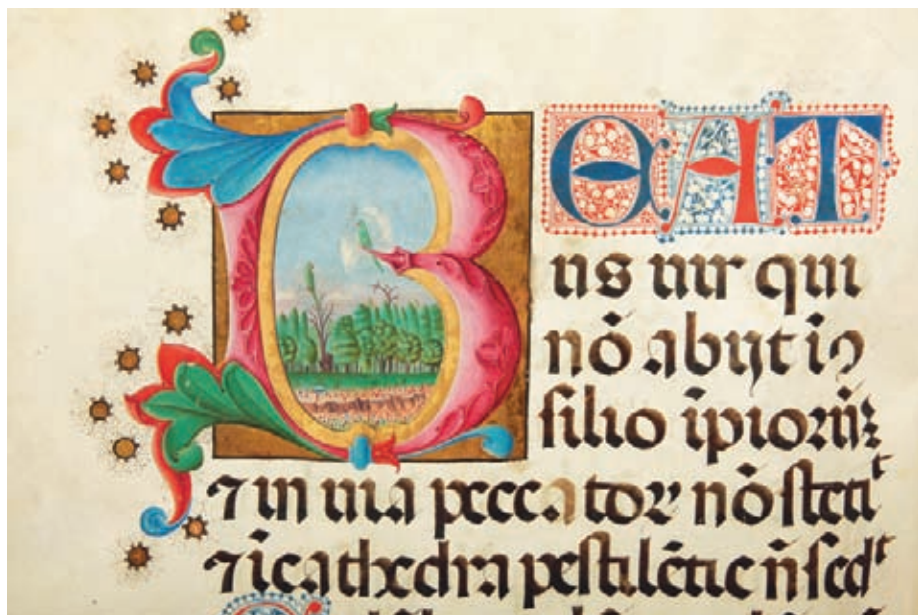 BEAT
us uir qui
nō abijt i ꝯ
ſilio īpiorūꝫ
⁊ in uia peccatoꝝ nō ſtetiᵗ
⁊ ī cathedra peſtilētie n̄ ſedᵗ